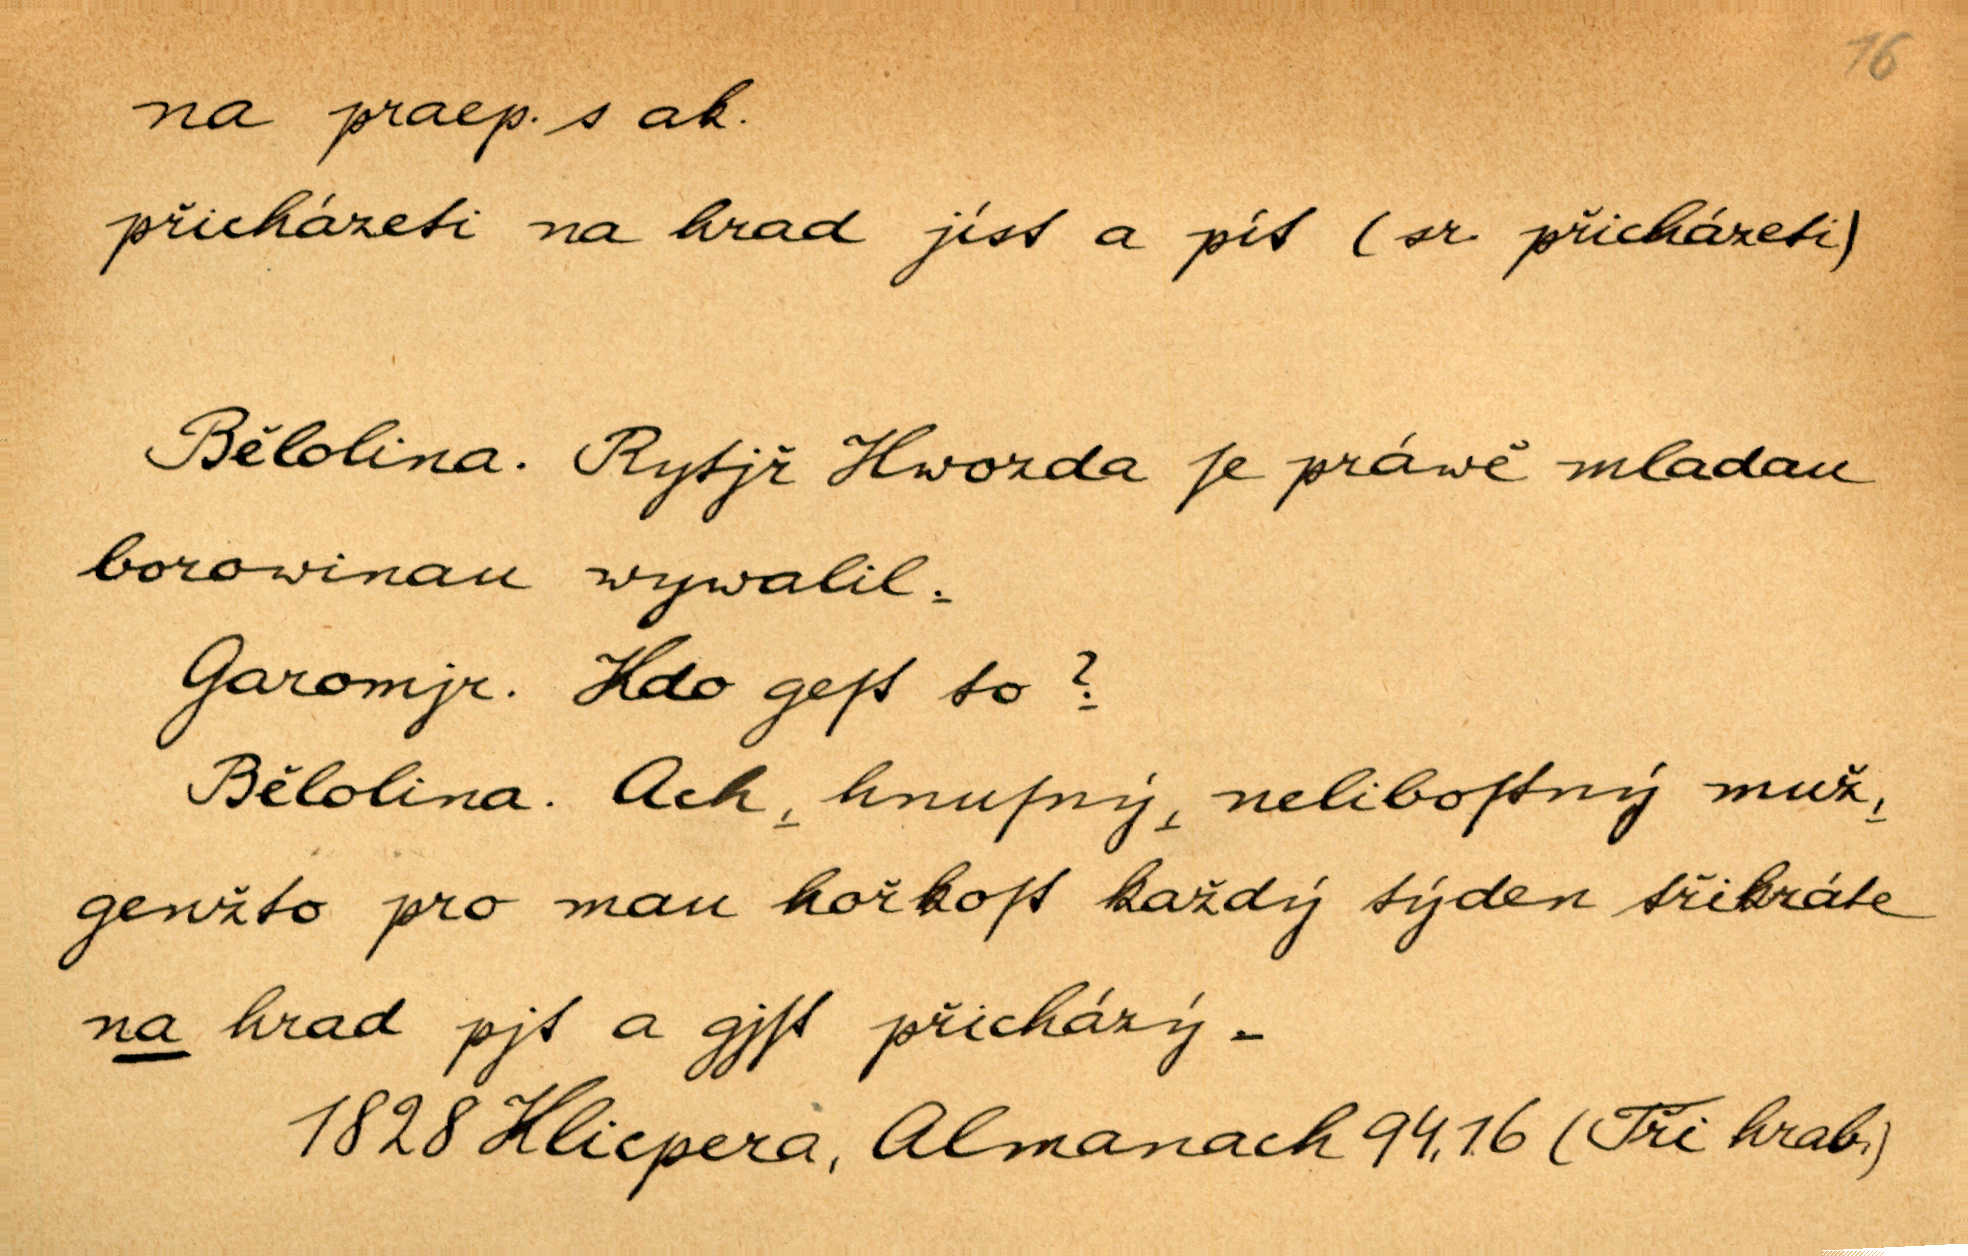 16
na praep. s ak.
přicházeti na hrad jíst a pít (sr. přicházeti)
Bělolina. Rytjř Hwozda ſe práwě mladau
borowinau wywalil.
Garomjr. Kdo geſt to?
Bělolina. Ach, hnuſný, neliboſtný muž,
genžto pro mau hořkoſt každý týden třikráte
na hrad pjt a gjſt přicházý. 
1828 Klicpera, Almanach 94,16 (Tři hrab.)